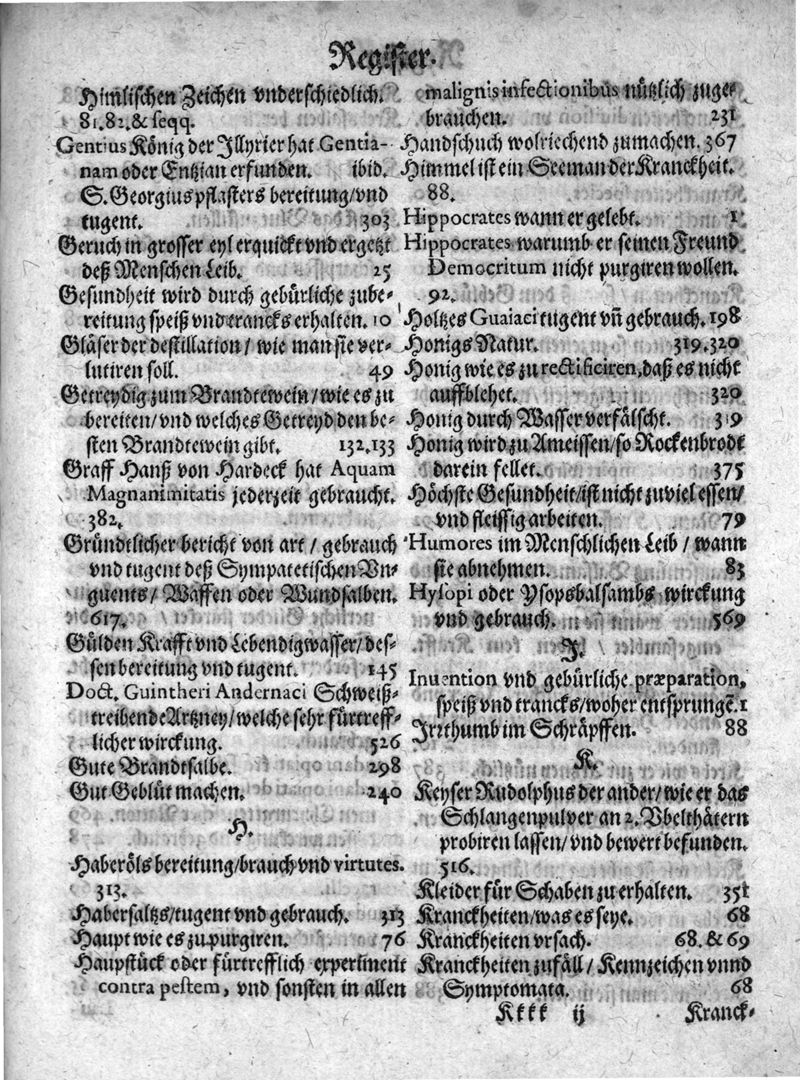 Register.
Himlischen Zeichen vnderschiedlich.
81. 82. & seqq.
Gentius König der Illyrier hat Gentia-
nam oder Entzian erfunden. ibid.
S. Georgius pflasters bereitung/vnd
tugent. 303
Geruch in grosser eyl erquickt vnd ergetzt
deß Menschen Leib. 25
Gesundheit wird durch gebürliche zube-
reitung speiß vnd trancks erhalten. 10
Gläser der destillation / wie man sie ver-
lutiren soll. 49
Getreydig zum Brandtewein/wie es zu
bereiten/vnd welches Getreyd den be-
sten Brandtewein gibt. 132.133
Graff Hanß von Hardeck hat Aquam
Magnanimitatis jederzeit gebraucht.
382.
Gründtlicher bericht von art / gebrauch
vnd tugent deß Sympatetischen Vn-
guents / Waffen oder Wundsalben.
617.
Gülden Krafft vnd Lebendigwasser/des-
sen bereitung vnd tugent. 145
Doct. Guintheri Andernaci Schweiß-
treibende Artzney/welche sehr fürtreff-
licher wirckung. 526
Gute Brandtsalbe. 298
Gut Geblüt machen. 240
H.
Haberöls bereitung/brauch vnd virtutes.
313.
Habersaltzs/tugent vnd gebrauch. 313
Haupt wie es zu purgiren. 76
Haupstück oder fürtrefflich experiment
contra pestem, vnd sonsten in allen
malignis infectionibus nützlich zuge-
brauchen. 231
Handschuch wolriechend zumachen. 367
Himmel ist ein Seeman der Kranckheit.
88.
Hippocrates wann er gelebt. 1
Hippocrates warumb er seinen Freund
Democritum nicht purgiren wollen.
92.
Holtzes Guaiaci tugent vñ gebrauch. 198
Honigs Natur. 319.320
Honig wie es zu rectificiren, daß es nicht
auffblehet. 320
Honig durch Wasser verfälscht. 319
Honig wird zu Ameissen/so Rockenbrodt
darein fellet. 375
Höchste Gesundheit/ist nicht zuviel essen/
vnd fleissig arbeiten. 79
Humores im Menschlichen Leib / wann
sie abnehmen. 83
Hysopi oder Ysopsbalsambs wirckung
vnd gebrauch. 569
I.
Inuention vnd gebürliche præparation,
speiß vnd trancks/woher entsprungẽ. 1
Irrthumb im Schräpffen. 88
K.
Keyser Rudolphus der ander/wie er das
Schlangenpulver an 2. Vbelthätern
probiren lassen/vnd bewert befunden.
516.
Kleider für Schaben zu erhalten. 351
Kranckheiten/was es seye. 68
Kranckheiten vrsach. 68. & 69
Kranckheiten zufäll / Kennzeichen vnnd
Symptomata. 68
Kkkk ij Kranck-